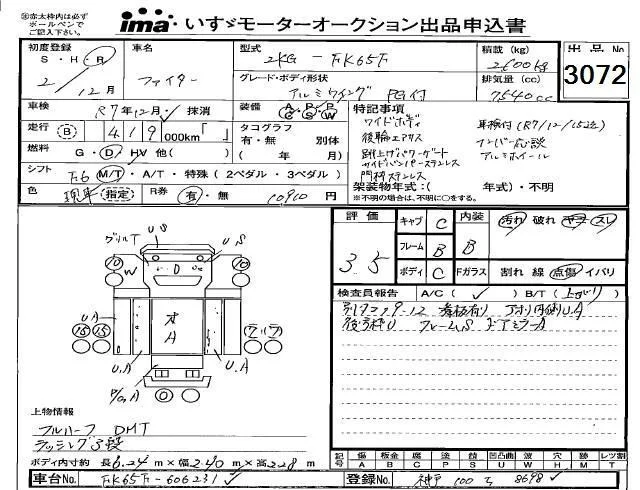 ※赤太枠内は必ず
ボールペンで
ご記入下さい。
ima いすゞモーターオークション出品申込書
初度登録 車名 型式 積載 (kg) 出品No
S・H・R ファイター 2KG - FK65F 2600kg 3072
2/12月 グレード・ボディ形状 排気量 (cc)
アルミウイング PG付 7540cc
車検 R7年12月・抹消 装備 AC PS AB PW 特記事項
走行 B 419000km「 」 タコグラフ ワイドボディ 車検付(R7/12/15迄)
有・無 別体 後輪エアサス ナンバー応談
燃料 G・D・HV 他( ) ( 年 月) 跳上げパワーゲート アルミホイール
シフト F6 M/T・A/T・特殊(2ペダル・3ペダル) サイドバンパーステンレス
門構ステンレス
色 現車 指定 R券 有・無 10910円 架装物年式:( 年式)・不明
※不明の場合は、不明に○をする。
評価 キャブ C 内装 汚れ 破れ ヤニ スレ
3.5 フレーム B B
ボディ C Fガラス 割れ 線 点傷 イバリ
検査員報告 A/C( ✓ ) B/T(上がり)
看板有り アオリ内側U.A
後方枠U フレームS
グリルT U S
U S
W D
U.A オA U.A
U.A U.A
P/G,A
上物情報
フルハーフ DMT
ラッシング3段
ボディ内寸約 長6.24m×幅2.40m×高2.28m
記号 傷 板金 腐 塗 錆 凹 凹凸曲 波 穴 跡 レツ割
A B C P S U W H M T
車台No. FK65F-606231 登録No. 神戸 100 8698